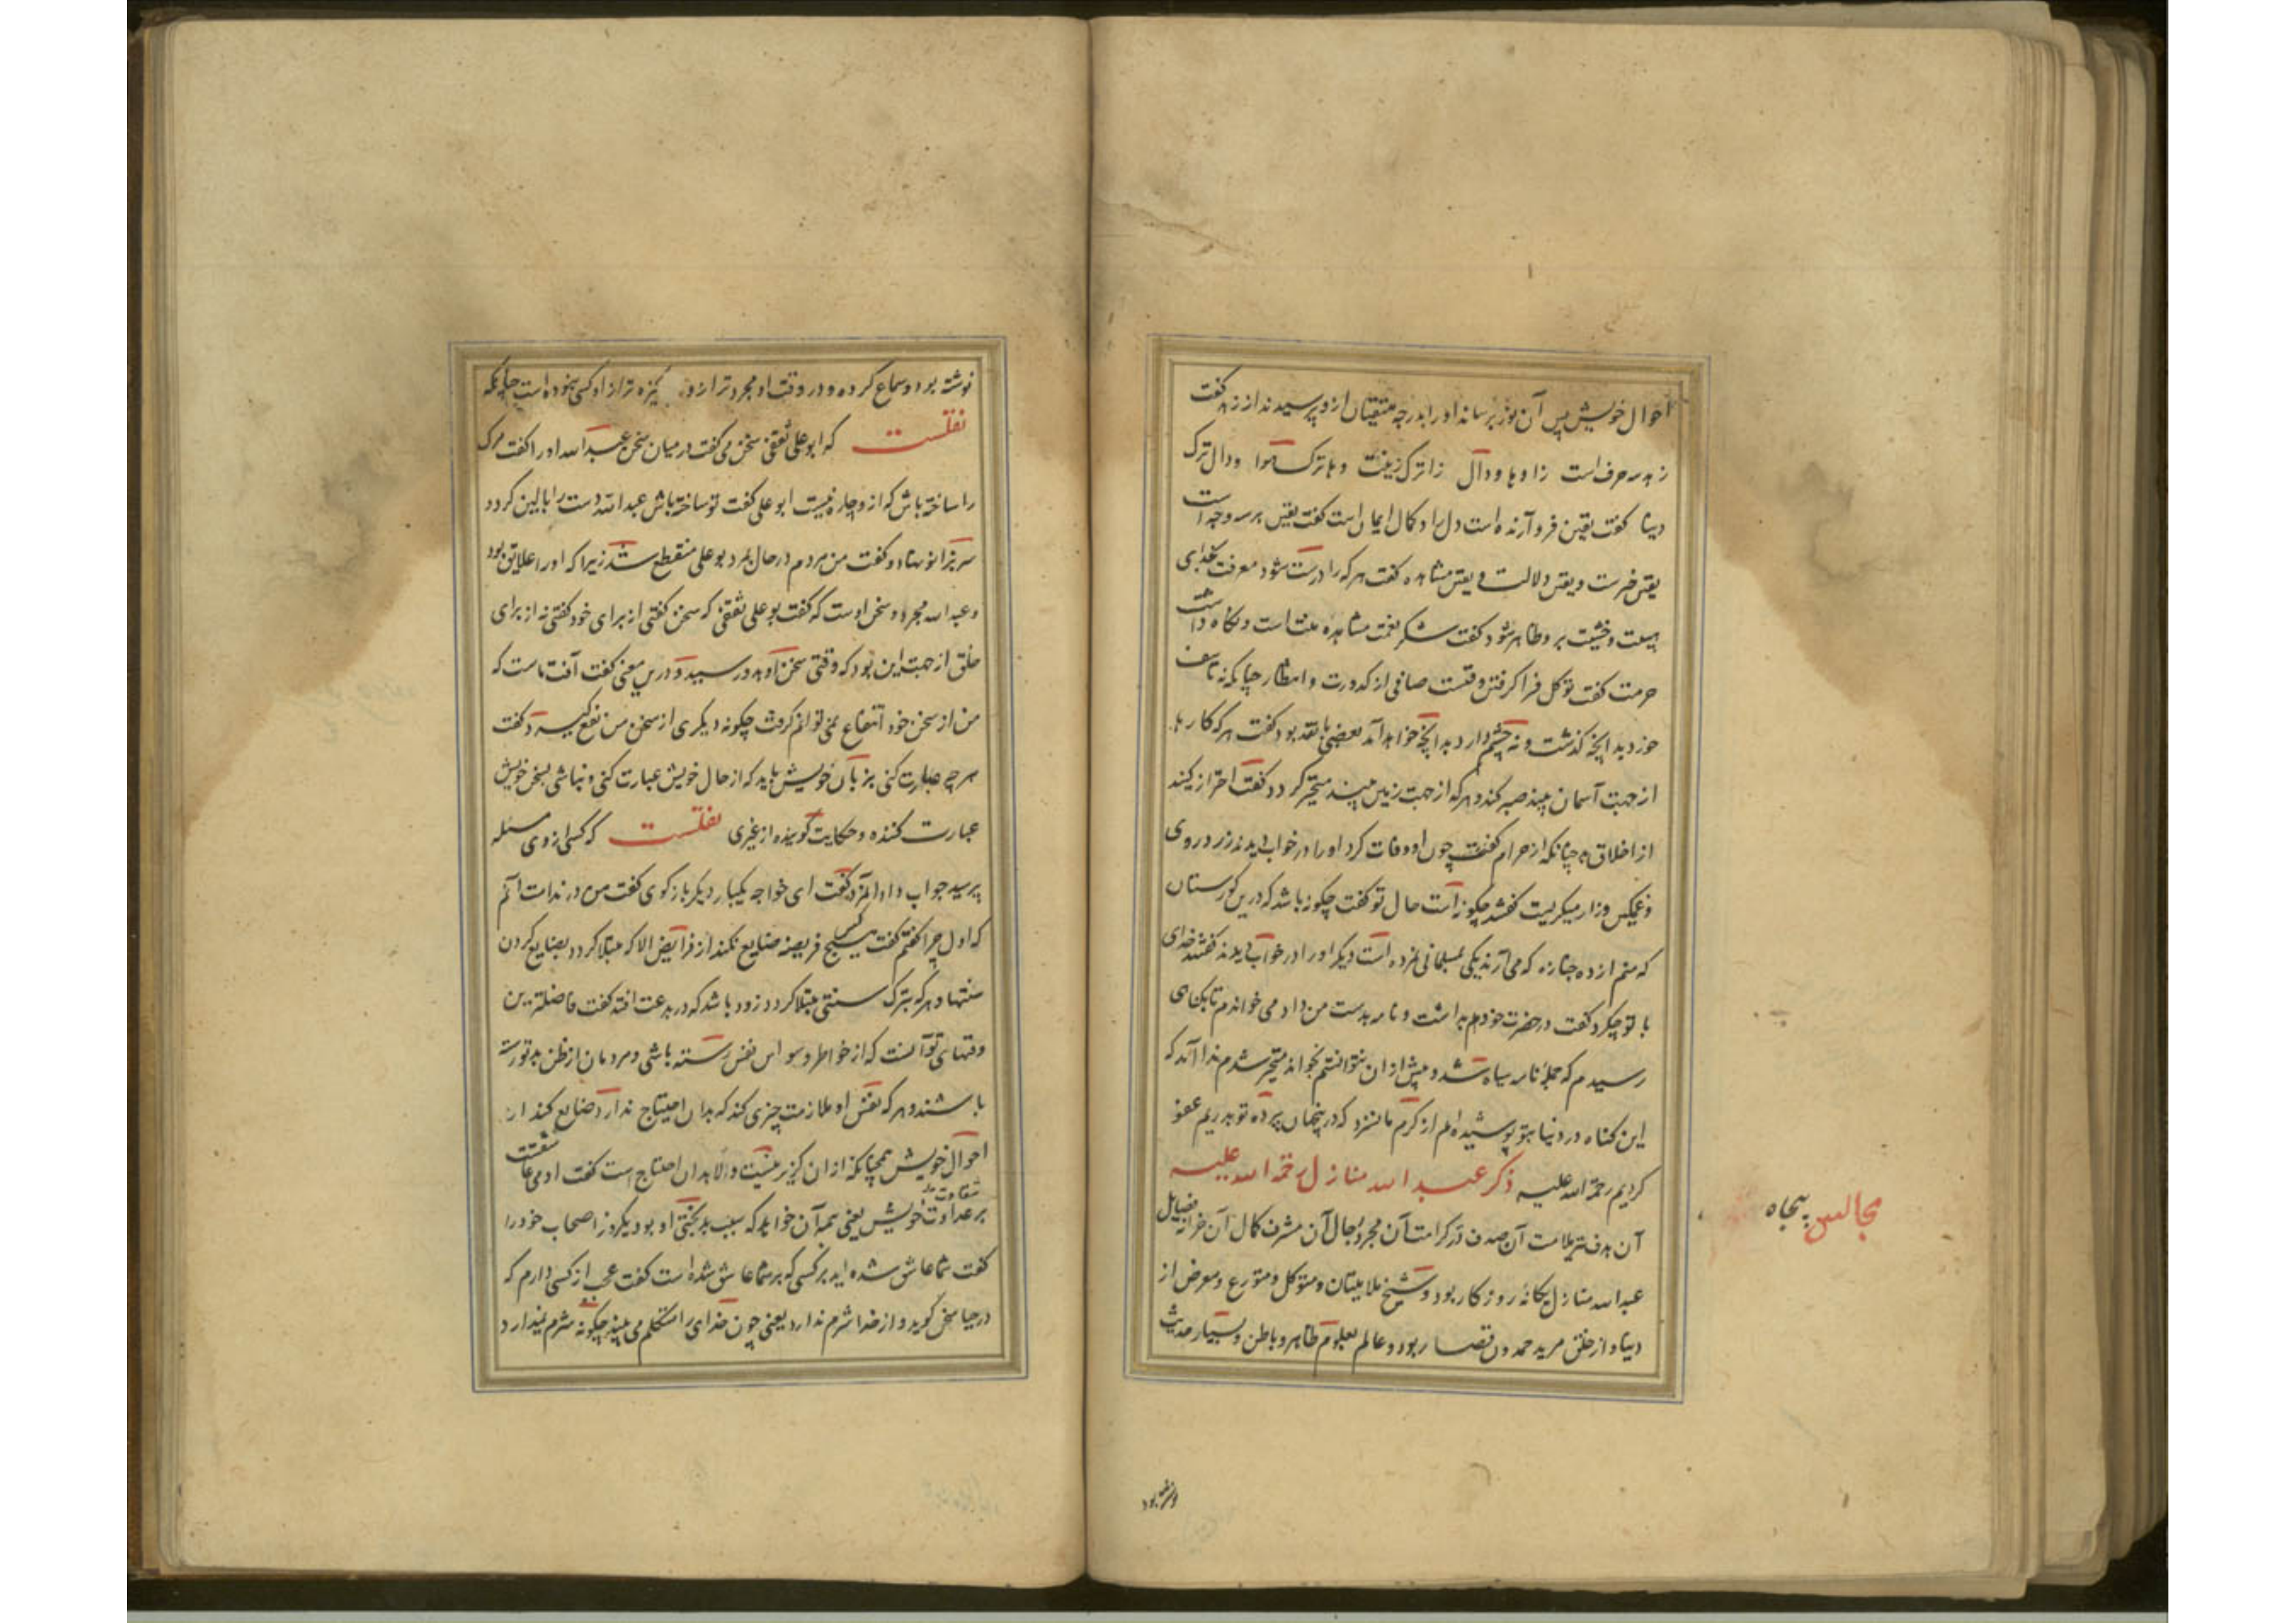 احوال خویش پس آن نور برساند او را بدرجه متقیان ازو پرسیدند از زهد گفت
زهد سه حرف است زا و ها و دال زا ترک زینت و ها ترک هوا و دال ترک
دنیا گفت یقین فرو آرنده است دل را و کمال ایمان است گفت یقین بر سه وجه است
یقین خبرست و یقین دلالت و یقین مشاهده گفت هر که را درست شود معرفت خدای
هیبت و خشیت برو ظاهر شود گفت شکر نعمت مشاهده منت است و نگاه داشت
حرمت گفت توکل فرا گرفتن وقتست صافی از کدورت و انتظار چنانکه نه تاسف
خورد بدانچه گذشت و نه چشم دارد بدانچه خواهد آمد یعضی بانقد بود گفت هر که کارها
از جهت آسمان بیند صبر کند و هر که از جهت زمین بیند متحیر گردد گفت احتراز کنید
از اخلاق بد چنانکه از حرام گفتند چون او وفات کرد او را در خواب دیدند زرد روی
و غمگین و زار میگریست گفتند چگونه است حال تو گفت چگونه باشد که درین گورستان
که منم از ده جنازه که می آرند یکی بمسلمانی نمرده است دیگر او را در خواب دیدند گفتند خدای
با تو چکرد گفت در حضرت خودم بداشت و نامه بدست من داد می خواندم تا بگناهی
رسیدم که جمله نامه سیاه شد و پیش از ان نتوانستم خواند متحیر شدم ندا آمد که
این گناه در دنیا بتو پوشیده ام از کرم ما نسزد که درینجهان پرده تو بدریم عفو
کردیم رحمة الله علیه ذکر عبد الله منازل رحمة الله علیه
آن هدف تیر ملامت آن صدف در کرامت آن مجرد رجال آن مشرف کمال آن خزانه فضایل
عبد الله منازل یگانه روزگار بود و شیخ ملامتیان و متوکل و متورع و معرض از
دنیا و از خلق مرید حمدون قصار بود و عالم بعلوم ظاهر و باطن و بسیار حدیث
مجالس پنجاه
نوشته بود و سماع کرده و در وقت او مجردتر ازو پاکیزه تر از او کسی نبوده است چنانکه
نقلست که ابو علی ثقفی سخن می گفت در میان سخن عبد الله او را گفت مرگ
را ساخته باش که ازو چاره نیست ابو علی گفت تو ساخته باش عبد الله دست را بالین کرد و
سر برانو نهاد و گفت من مردم در حال بمرد بو علی منقطع شد زیرا که او را علایق بود
و عبد الله مجرد و سخن اوست که گفت بو علی ثقفی که سخن گفتی از برای خود گفتی نه از برای
خلق از جهت این بود که وقتی سخن او بدو رسید و درین معنی گفت آفت ماست که
من از سخن خود انتفاع نمی توانم گرفت چگونه دیگری از سخن من نفع گیرد و گفت
هر چه عبارت کنی بزبان خویش باید که از حال خویش عبارت کنی و نباشی بسخن خویش
عبارت کننده و حکایت گوینده از غیری نقلست که کسی از وی مسئله
پرسید جواب داد المرد گفت ای خواجه یکبار دیگر باز گوی گفت من در ندامت آنم
که اول چرا گفتم گفت هیچ کس فریضه ضایع نکند از فرایض الا که مبتلا گردد بضایع کردن
سنتها و هر که بترک سنتی مبتلا گردد زود باشد که در بدعت افتد گفت فاضلترین
وقتهای تو آنست که از خواطر و وسواس نفس رسته باشی و مردمان از ظن بد تو رسته
باشند و هر که نفس او ملازمت چیزی کند که بدان احتیاج ندارد ضایع کند از
احوال خویش همچنانکه از ان گزیر نیست و الا بدان احتیاج است گفت ادمی عاشقست
بر شقاوت خویش یعنی همه آن خواهد که سبب بدبختی او بود یکروز اصحاب خود را
گفت شما عاشق شده اید بر کسی که بر شما عاشق شده است گفت عجب از کسی دارم که
در حیا سخن گوید و از خدا شرم ندارد یعنی چون خدای را متکلم می بیند چگونه شرم نمیدارد